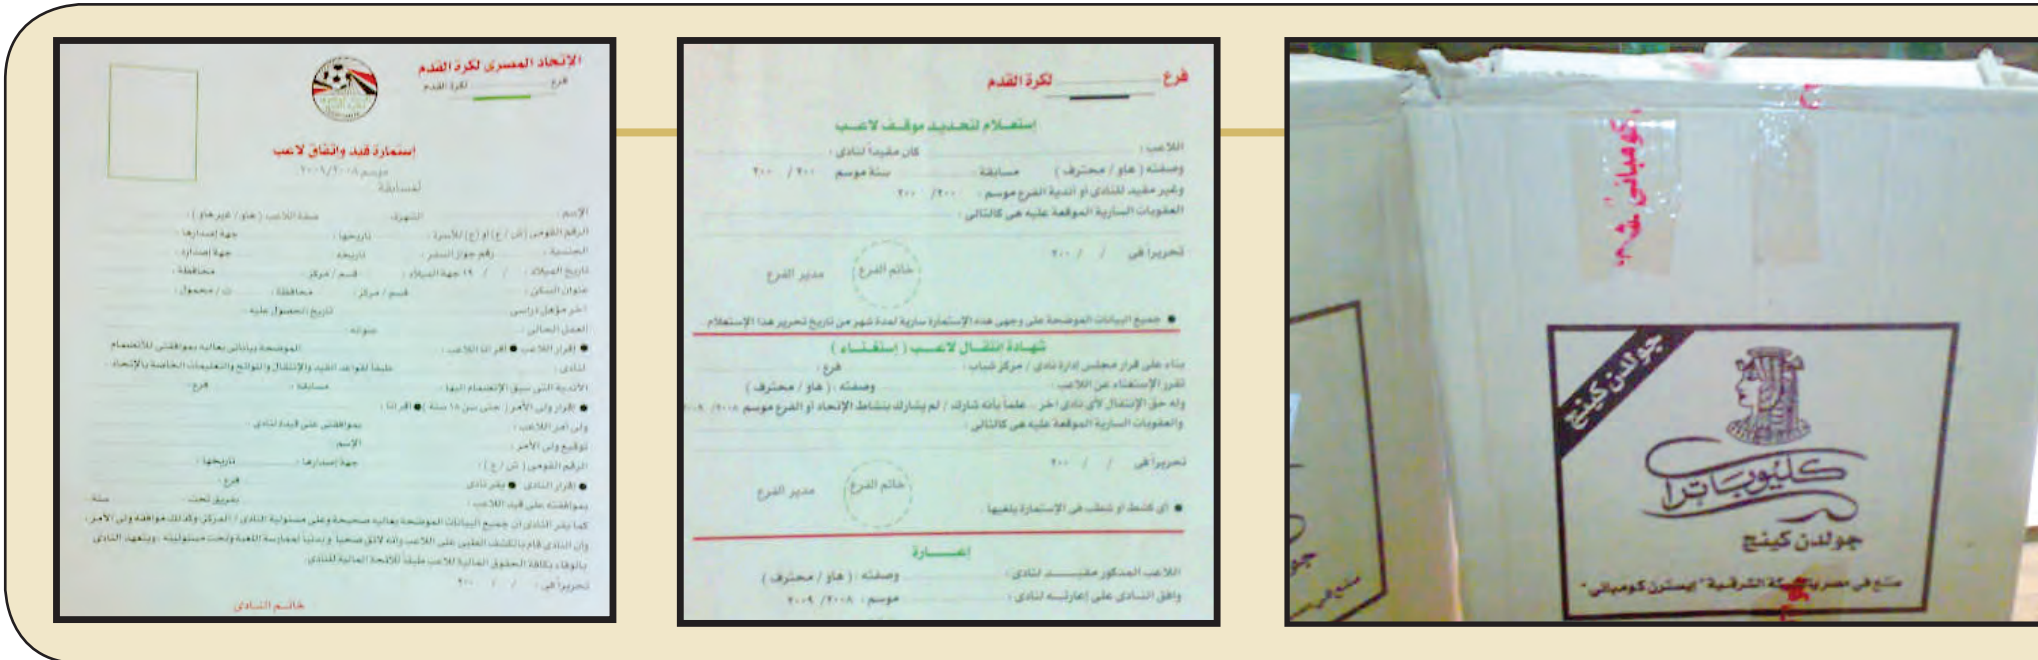 الإتحاد المصرى لكرة القدم
فرع لكرة القدم
إستمارة قيد واتفاق لاعب
موسم ٢٠٠٩/٢٠٠٨
لمسابقة
الإسم : الشهرة صفة اللاعب ( هاو / غير هاو ) :
الرقم القومى (ش / ع) أو (ع) للأسرة : تاريخها : جهة إصدارها :
الجنسية : رقم جواز السفر : تاريخه : جهة إصداره :
تاريخ الميلاد : / / ١٩ جهة الميلاد : قسم / مركز : محافظة :
عنوان السكن : قسم / مركز : محافظة : ت / محمول :
اخر مؤهل دراسى تاريخ الحصول عليه :
العمل الحالى : عنوانه :
● إقرار اللاعب ● أقر انا اللاعب : الموضحة بياناتى بعاليه بموافقتى للأنضمام
لنادى : طبقاً لقواعد القيد والإنتقال واللوائح والتعليمات الخاصة بالإتحاد .
الأندية التى سبق الإنضمام اليها : مسابقة : فرع :
● إقرار ولى الأمر ( حتى سن ١٨ سنة ) ● أقر انا :
ولى أمر اللاعب : بموافقتى على قيدة لنادى :
توقيع ولى الأمر : الإسم :
الرقم القومى ( ش / ع ) : جهة إصدارها : تاريخها :
● إقرار النادى ● يقر نادى فرع :
بموافقته على قيد اللاعب : بفريق تحت : سنة
كما يقر النادى أن جميع البيانات الموضحة بعاليه صحيحة وعلى مسئولية النادى / المركز وكذلك موافقة ولى الأمر ،
وأن النادى قام بالكشف الطبى على اللاعب وانه لائق صحيا و بدنياً لممارسة اللعبة وتحت مسئوليته ، ويتعهد النادى
بالوفاء بكافة الحقوق المالية للاعب طبقاً للائحة المالية للنادى .
تحريراً فى : / / ٢٠٠
خاتم النادى
فرع لكرة القدم
إستعلام لتحديد موقف لاعب
اللاعب : كان مقيداً لنادى :
وصفته ( هاو / محترف ) مسابقة : بنة موسم ٢٠٠ / ٢٠٠
وغير مقيد للنادى أو أندية الفرع موسم : ٢٠٠ / ٢٠٠
العقوبات السارية الموقعة عليه هى كالتالى :
تحريراً فى / / ٢٠٠
خاتم الفرع مدير الفرع
● جميع البيانات الموضحة على وجهى هذه الإستمارة سارية لمدة شهر من تاريخ تحرير هذا الإستعلام .
شهادة إنتقال لاعب ( إستغناء )
بناء على قرار مجلس إدارة نادى / مركز شباب : فرع :
تقرر الإستغناء عن اللاعب : وصفته : ( هاو / محترف )
وله حق الإنتقال لأى نادى اخر .. علماً بأنه شارك / لم يشارك بنشاط الإتحاد أو الفرع موسم ٢٠٠٨ / ٢٠٠٩
والعقوبات السارية الموقعة عليه هى كالتالى :
تحريراً فى / / ٢٠٠
خاتم الفرع مدير الفرع
● أى كشط او شطب فى الإستمارة يلغيها .
إعـــارة
اللاعب المذكور مقيـــد لنادى : وصفته : ( هاو / محترف )
وافق النادى على إعارتـه لنادى : موسم : ٢٠٠٨ / ٢٠٠٩
كومبانى ش.م.
جولدن كينج
كليوباترا
جولدن كينج
صنع فى مصر بالشركة الشرقية " إيسترن كومبانى "
صنع فى